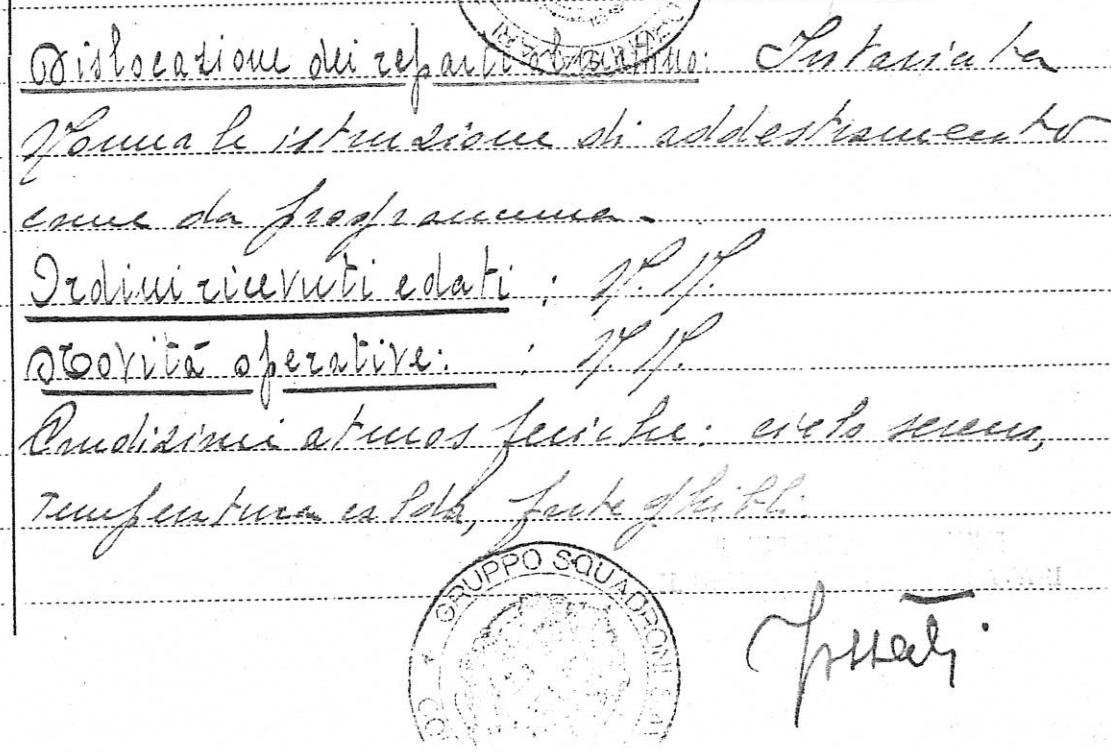 Dislocazione dei reparti al mattino: Invariata
Normale istruzione di addestramento
come da programma.
Ordini ricevuti e dati : N. N.
Novità operative: : N. N.
Condizioni atmosferiche: cielo sereno,
temperatura calda, forte ghibli.
GRUPPO SQUADRONI